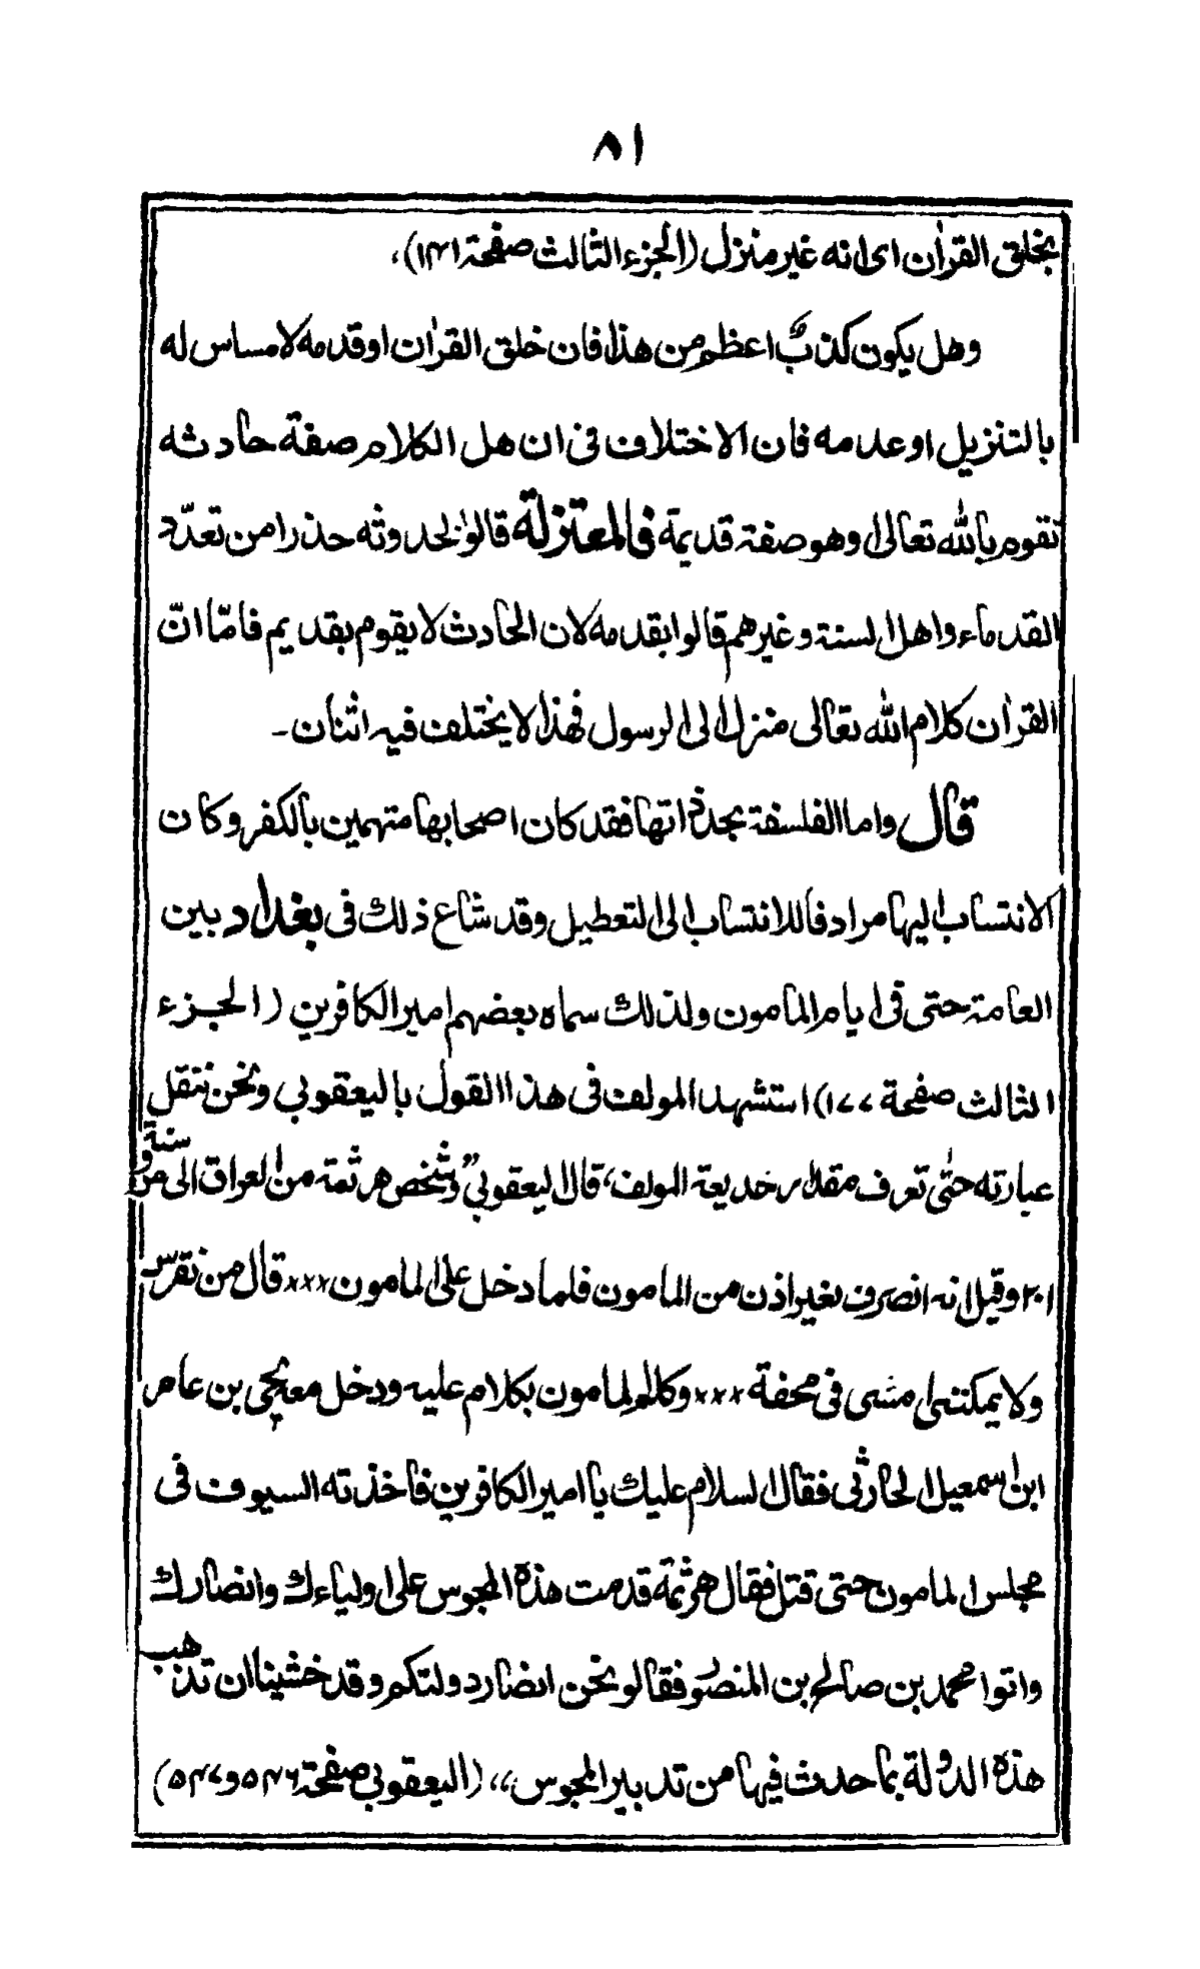 ٨١
بخلق القرآن اى انه غير منزل (الجزء الثالث صفحة ١٤١)،
وهل يكون كذبٌ اعظم من هذا فان خلق القرآن او قدمه لا مساس له
بالتنزيل او عدمه فان الاختلاف فى ان هل الكلام صفة حادثه
تقوم بالله تعالى او هو صفة قديمة فالمعتزلة قالوا بحدوثه حذرا من تعدّد
القدماء واهل السنة وغيرهم قالوا بقدمه لان الحادث لا يقوم بقديم فامّا انّ
القرآن كلام الله تعالى منزل الى الرسول فهذا لا يختلف فيه اثنان -
قال واما الفلسفة بحد ذاتها فقد كان اصحابها متهمين بالكفر وكان
الانتساب اليها مرادفا للانتساب الى التعطيل وقد شاع ذلك فى بغداد بين
العامة حتى فى ايام المامون ولذلك سماه بعضهم امير الكافرين (الجزء
الثالث صفحة ١٧٧) استشهد المولف فى هذا القول باليعقوبى ونحن ننقل
عبارته حتى تعرف مقدار خديعة المولف، قال اليعقوبى "وشخص هرثمة من العراق الى مرو سنة
٢٠١ وقيل انه انصرف بغير اذن من المامون فلما دخل على المامون ××× قال من نقرس
ولا يمكننى امشى فى محفة ××× وكلم المامون بكلام عليه ودخل معه يحيى بن عامر
ابن اسمعيل الحارثى فقال السلام عليك يا امير الكافرين فاخذته السيوف فى
مجلس المامون حتى قتل فقال هرثمة قدمت هذه المجوس على اولياءك وانصارك
واتوا محمد بن صالح بن المنصور فقالو نحن انصار دولتكم وقد خشينا ان تذهب
هذه الدولة بما حدث فيها من تدبير المجوس،، (اليعقوبى صفحة ٥٤٦ و٥٤٧)